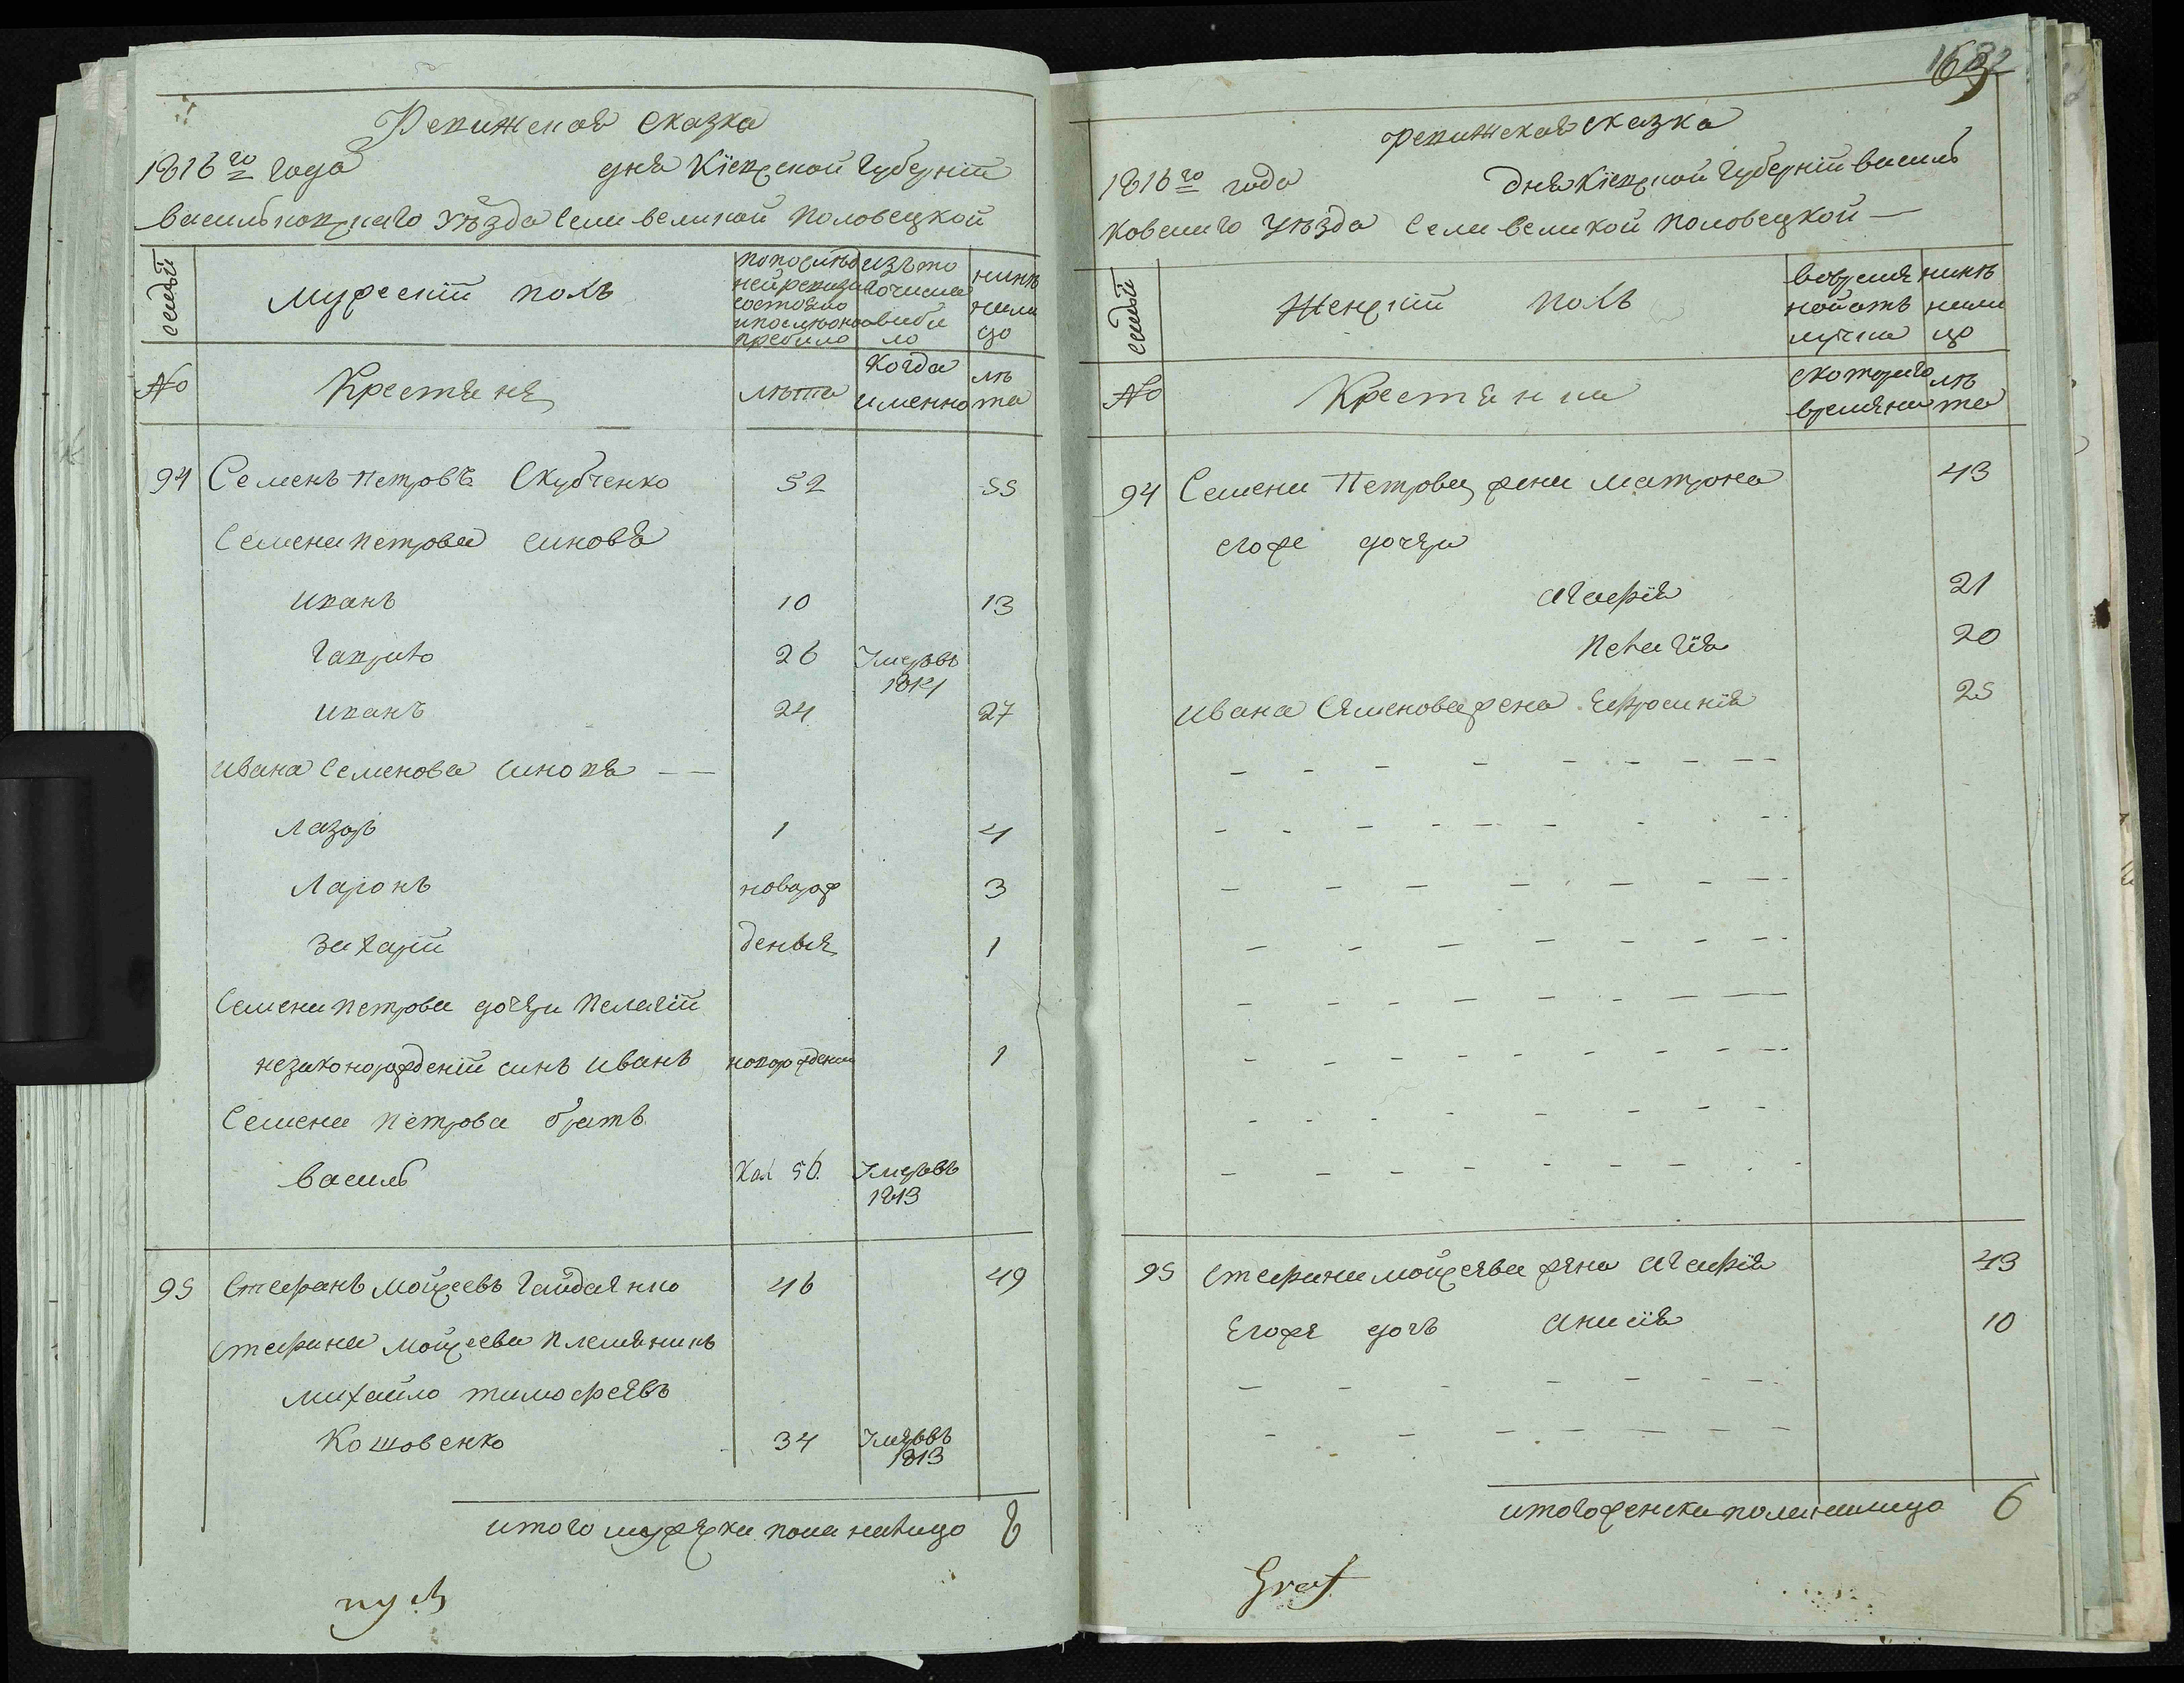 Ревижская сказка
1816го года дня Кіевской Губерніи
васильковскаго уѣзда Села великой Половецкой
семьи
Мужескій полъ
по послѣд
ней ревизіи
состояло
и после оной
прибыло
изъ то
го числа
выбы
ло
нинѣ
нали
цо
№
Крестяня
лѣта
Когда
именно
лѣ
та
94 Семенъ петровъ Скубченко 52 55
Семена петрова синовя
иванъ 10 13
гаврило 26 Умеръвъ
1814
иванъ 24 27
ивана Семенова синовя — —
лазоръ 1 4
Ларонъ новорож 3
Захарій денъия 1
Семена петрова дочери пелагіи
незаконорожденій синъ иванъ новорожденъ 1
Семена петрова братъ
василь 56 Умеръвъ
1813
95 Стефанъ мойсеевъ гайдаенко 46 49
Стефана мойсеева племянникъ
михайло тимофеявъ
Кошовенко 34 Умеръвъ
1813
итого мужеска пола налицо 8
Ревижская сказка
1816го года дня Кіевской губерніи василь
ковскаго уѣзда Села великой половецкой —
семьи
Женскій полъ
вовремя
ной отъ
лучки
нинѣ
нали
цо
№
Крестянки
скоторого
времяни
лѣ
та
94 Семена Петрова жена матрона 43
егоже дочери
агафія 21
Пелагія 20
ивана Семенова жена Ефросинія 25
95 стефана мойсеява жена агафія 43
Егоже дочъ анисія 10
итого женска пола налицо 6
Graf